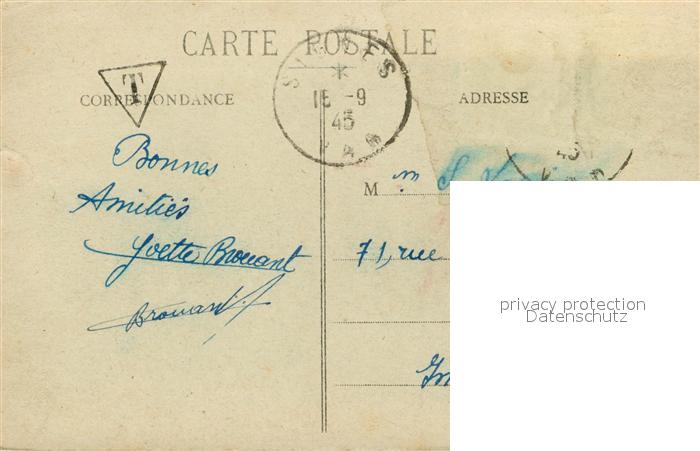 CARTE POSTALE
T
CORRESPONDANCE
ADRESSE
15 -9
45
VAR
Bonnes
Amitiés
Yvette Brouant
Brouant
M
m S
71, rue
privacy protection
Datenschutz